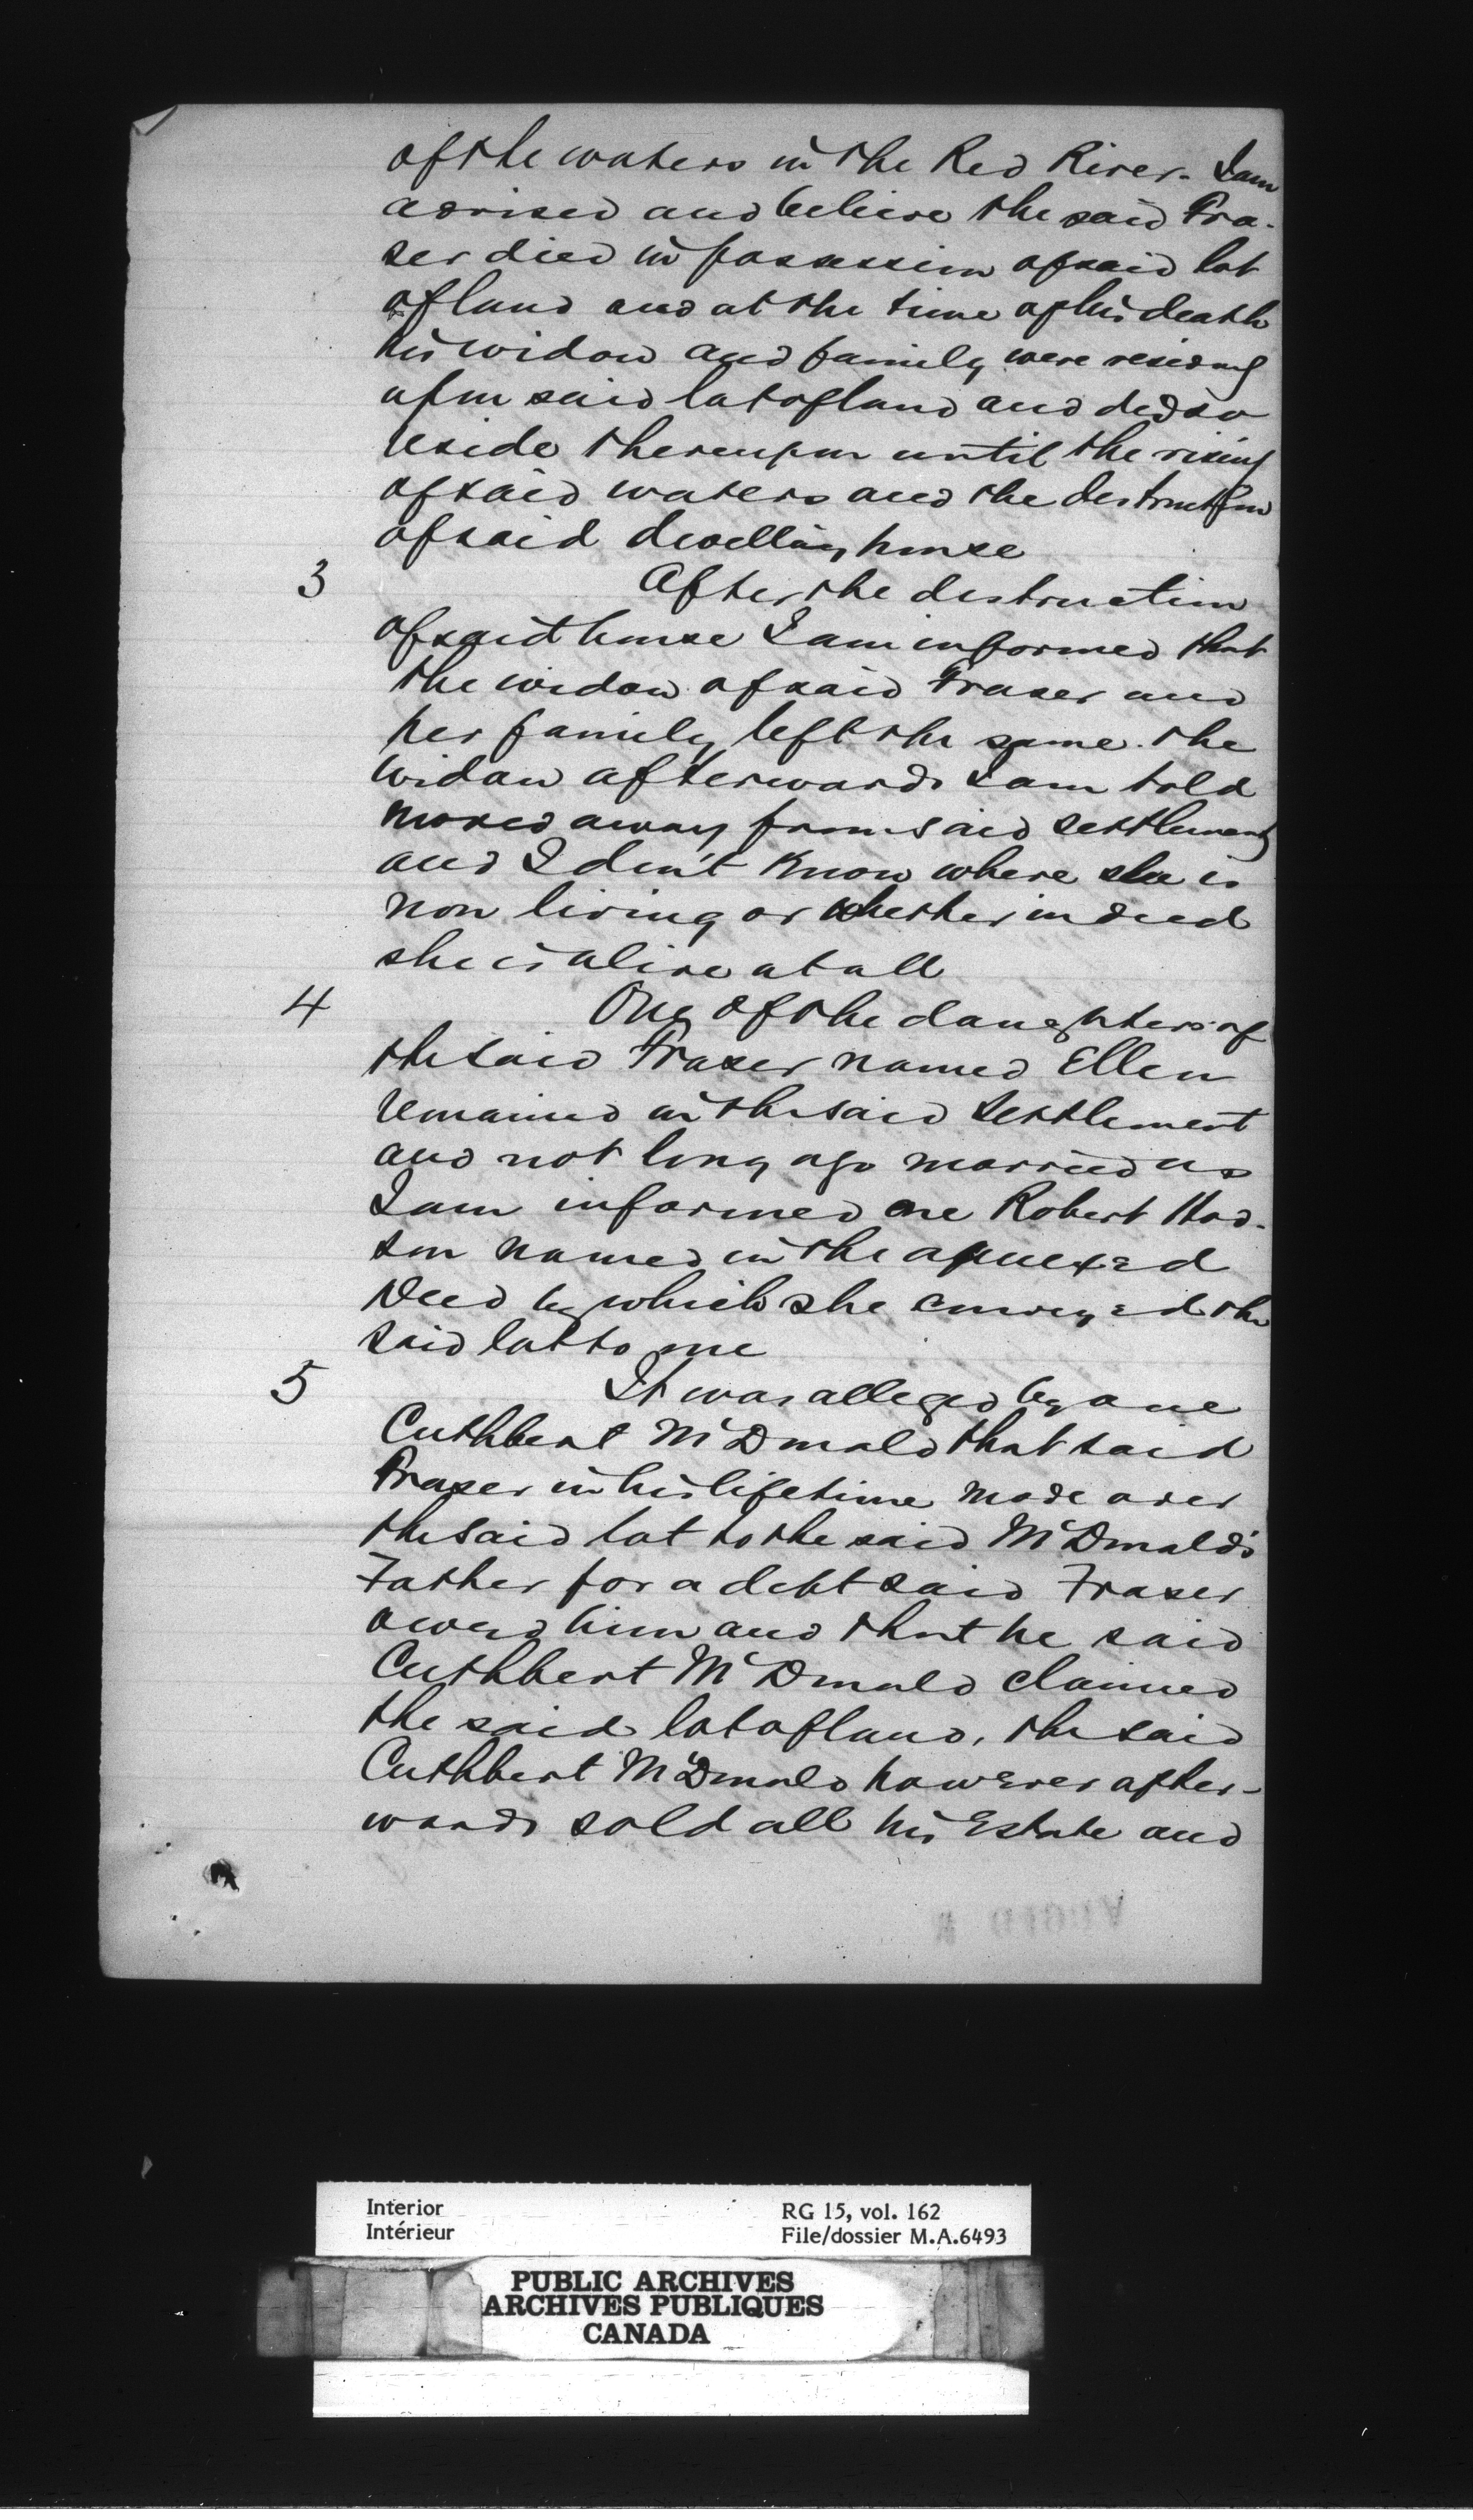 of the waters in the Red River. I am
advised and believe the said Fra-
ser died in possession of said lot
of land and at the time of his death
his widow and family were residing
upon said lot of land and did so
reside thereupon until the rising
of said waters and the destruction
of said dwelling house
3 After the destruction
of said house I am informed that
the widow of said Fraser and
her family left the same. the
widow afterwards I am told
moved away from said settlement
and I don't know where she is
now living or whether indeed
she is alive at all
4 One of the daughters of
the said Fraser named Ellen
remained in the said Settlement
and not long ago married as
I am informed one Robert Hod-
son named in the annexed
Deed by which she conveyed the
said lot to me
5 It was alleged by one
Cuthbert McDonald that said
Fraser in his lifetime made over
the said lot to the said McDonald's
Father for a debt said Fraser
owed him and that he said
Cuthbert McDonald claimed
the said lot of land, the said
Cuthbert McDonald however after-
wards sold all his Estate and
Interior
Intérieur
RG 15, vol. 162
File/dossier M.A.6493
PUBLIC ARCHIVES
ARCHIVES PUBLIQUES
CANADA